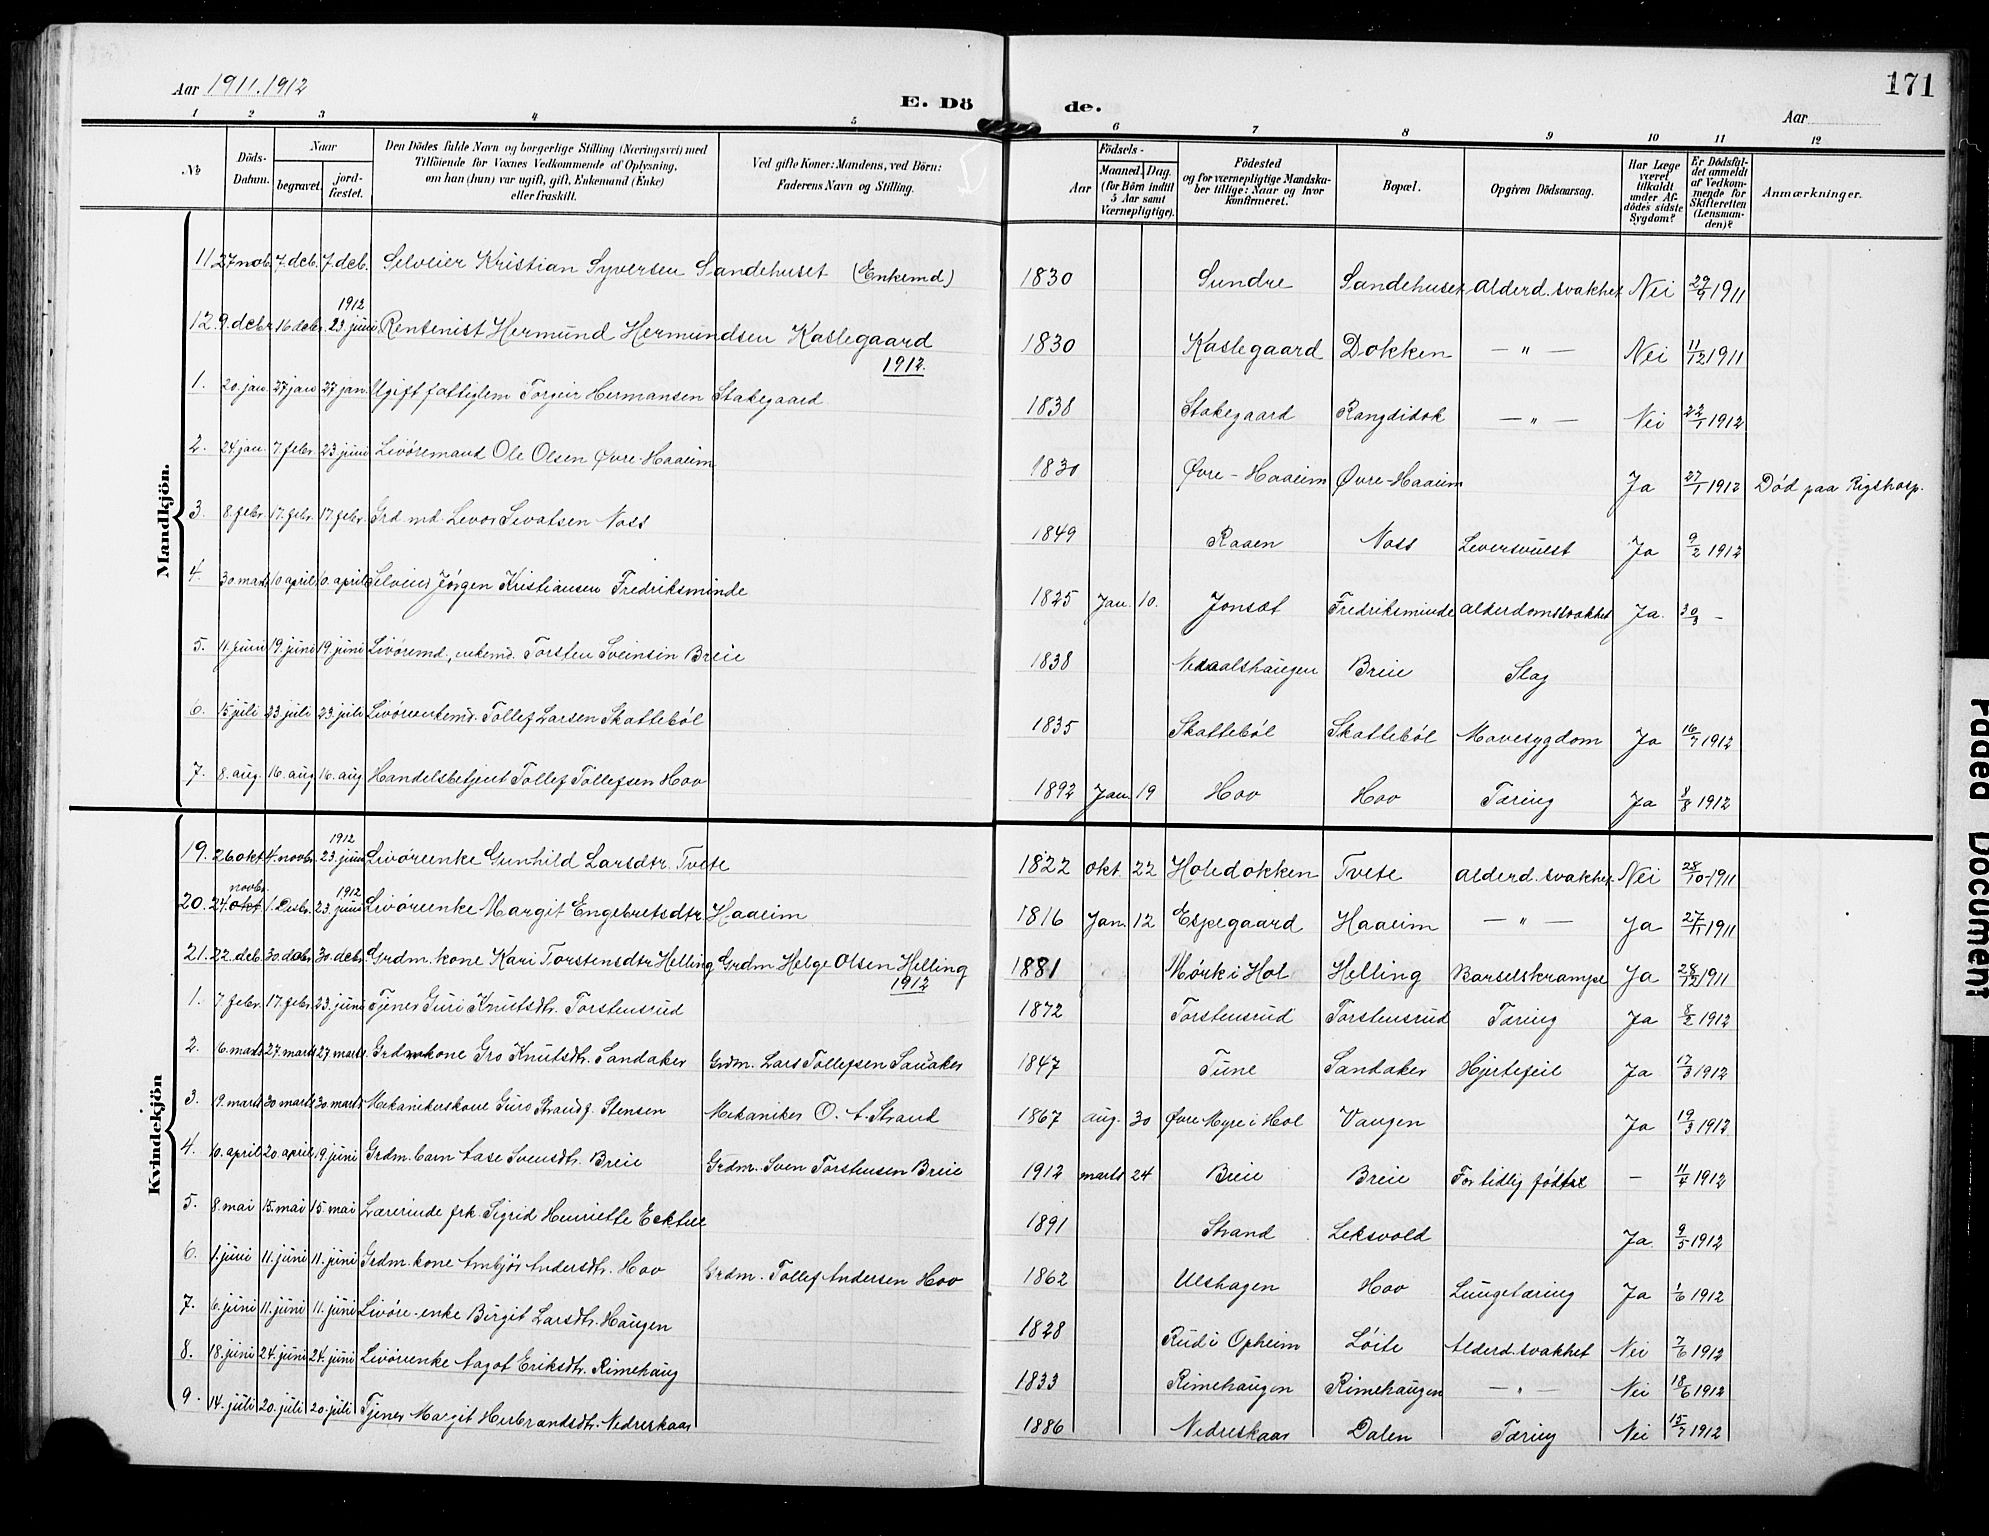 Aar 1911.1912
E. Dö de.
171
Aar
1 2 3 4 5 6 7 8 9 10 11 12
№
Döds-Datum.
Naar begravet. jordfæstet.
Den Dödes fulde Navn og borgerlige Stilling (Næringsvei) med Tilföiende for Voxnes Vedkommende af Oplysning, om han (hun) var ugift, gift, Enkemand (Enke) eller fraskilt.
Ved gifte Koner: Mandens, ved Börn: Faderens Navn og Stilling.
Födsels-
Aar
Maaned. Dag. (for Börn indtil 5 Aar samt Værnepligtige).
Födested og for værnepligtige Mandskaber tillige: Naar og hvor konfirmeret.
Bopæl.
Opgiven Dödsaarsag.
Har Læge været tilkaldt under Afdödes sidste Sygdom?
Er Dödsfaldet anmeldt af Vedkommende for Skifteretten (Lensmanden)?
Anmærkninger.
Mandkjön.
11 27 nob. 7. deb. 7. deb. Selveier Kristian Syversen Sandehuset (Enkemd) 1830 Sundre Sandehuset Alderd. svakhet Nei 29/9 1911
12. 9. debr. 16 debr. 1912 23. juni Rentenist Hermund Hermundsen Kaslegaard 1830 Kaslegaard Dokken — " — Nei 11/12 1911
1912.
1. 20. jan. 27 jan 27 jan. Ugift fattiglem Torgeir Hermansen Stakegaard 1838 Stakegaard Rangdidok — " — Nei 22/1 1912
2. 24 jan. 7. febr. 23 juni Livøremand Ole Olsen Øvre-Haaeim 1830 Øvre-Haaeim Øvre-Haaeim Ja 27/1 1912 Død paa Rigshosp.
3. 8 febr. 17. febr. 17 febr. Grd. md. Levor Sevatsen Noss 1849 Raaen Noss Leversvulst Ja 9/2 1912
4. 30 marts 10 april 10. april Selveier Jørgen Kristiansen Fredriksminde 1825 Jan. 10. Jonsæt Fredriksminde Alderdomssvakhet Ja. 30/3 —
5. 11. juni 19. juni 19 juni Livøremd., enkemd. Torsten Sveinsin Breie 1838 Nedaalshaugen Breie Slag
6. 15 juli 23. juli 23. juli Livøreenkemd. Tollef Larsen Skattebøl 1835 Skattebøl Skattebøl Mavesygdom Ja 16/7 1912
7. 8. aug. 16. aug 16. aug Handelsbetjent Tollef Tollefsen Hov 1892 Jan. 19 Hov Hov Tæring Ja 8/8 1912
Kvindekjön
19. 26 okt. 4. novbr. 1912 23. juni Livøreenke Gunhild Larsdtr. Tvete 1822 okt. 22 Holedokken Tvete Alderd. svakhet Nei 28/10 1911
20. 24. okt novbr. 1. Desbr. 1912 23. juni Livøreenke Margit Engebretsdtr. Haaeim 1816 Jan. 12 Espegaard Haaeim — " — Ja 27/11 1911
21. 22. deb. 30. debr. 30. debr. Grdm. kone Kari Torstensdtr Helling Grdm Helge Olsen Helling 1881 Mørk i Hol Helling Barselskrampe Ja 28/12 1911
1912
1. 7. febr. 17. febr. 23. juni Tjener Guri Knutsdtr. Torstensrud 1872 Torstensrud Torstensrud Tæring Ja 8/2 1912
2. 6. marts 27. marts 27. marts Grdmkone Gro Knutsdtr. Sandaker Grdm. Lars Tollefsen Sandaker 1847 Tune Sandaker Hjertefeil Ja 17/3 1912
3. 19. marts 30 marts 30. marts Mekanikerskone Guro Strand f. Stensen Mekaniker O. A. Strand 1867 aug. 30 Øvre Myre i Hol Vangen Ja 19/3 1912
4. 10. april 20. april 19. juni Grdm. barn Aase Svensdtr. Breie Grdm. Sven Torstensen Breie 1912 marts 24 Breie Breie For tidlig født — 11/4 1912
5. 8. mai 15. mai 15. mai Lærerinde frk. Sigrid Henriette 1891 Strand Leksvold Ja. 9/5 1912
6. 1. juni 11. juni 11. juni Grdm. kone Ambjør Andersdtr. Hov Grdm. Tollef Andersen Hov 1862 Ulshagen Hov Lungetæring Ja 1/6 1912
7. 6. juni 11. juni 11. juni Livøre-enke Birgit Larsdtr. Haugen 1828 Rud i Opheim Løite Alderd. svakhet Nei 7/6 1912
8. 18. juni 24. juni 24. juni Livøreenke Aagot Eriksdtr. Rimehaug 1833 Rimehaugen Rimehaugen — " — Nei 18/6 1912
9. 14. juli 20. juli 20. juli Tjener Margit Herbrandsdtr. Nedreskaar 1886 Nedreskaar Dalen Tæring Nei 15/7 1912
Paged Document